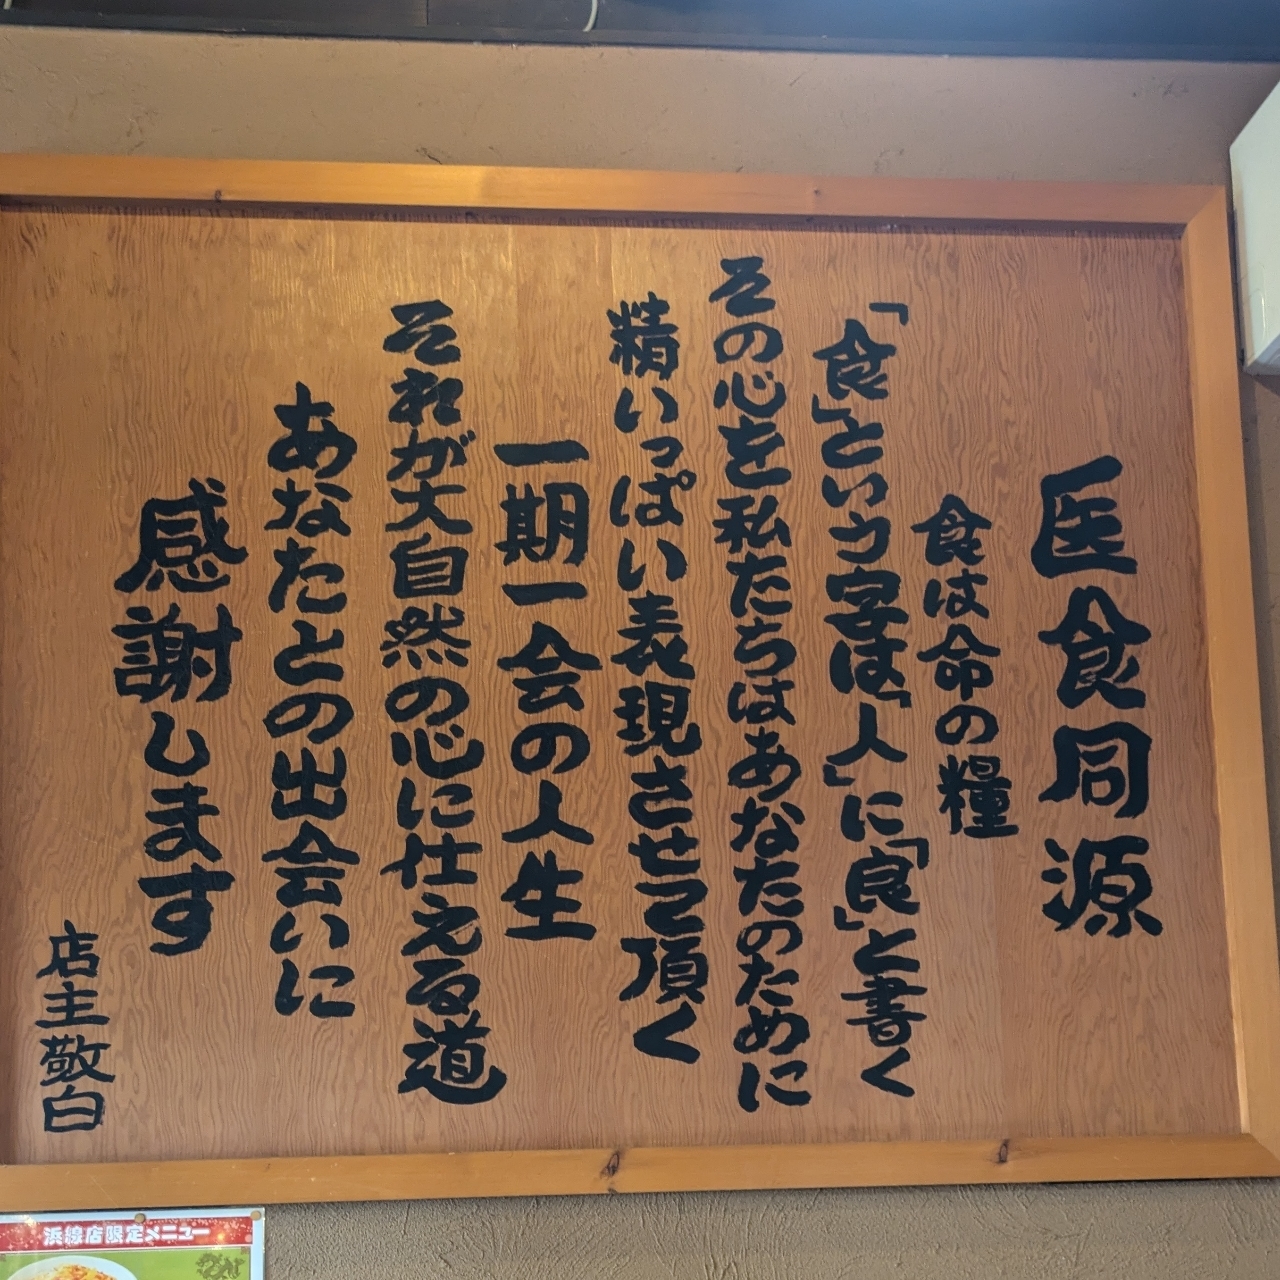 医食同源
食は命の糧
「食」という字は「人」に「良」と書く
その心を私たちはあなたのために
精いっぱい表現させて頂く
一期一会の人生
それが大自然の心に仕える道
あなたとの出会いに
感謝します
店主敬白
浜線店限定メニュー